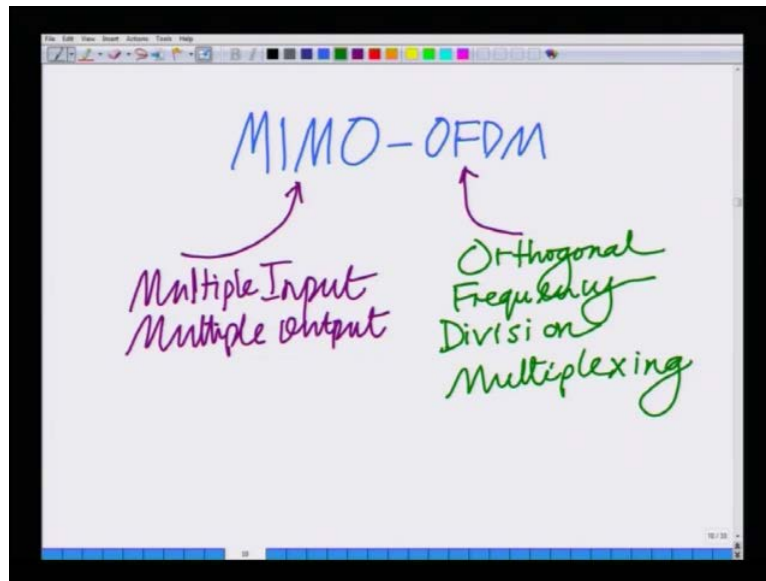 File Edit View Insert Actions Tools Help
B I
MIMO-OFDM
Multiple Input
Multiple Output
Orthogonal
Frequency
Division
Multiplexing